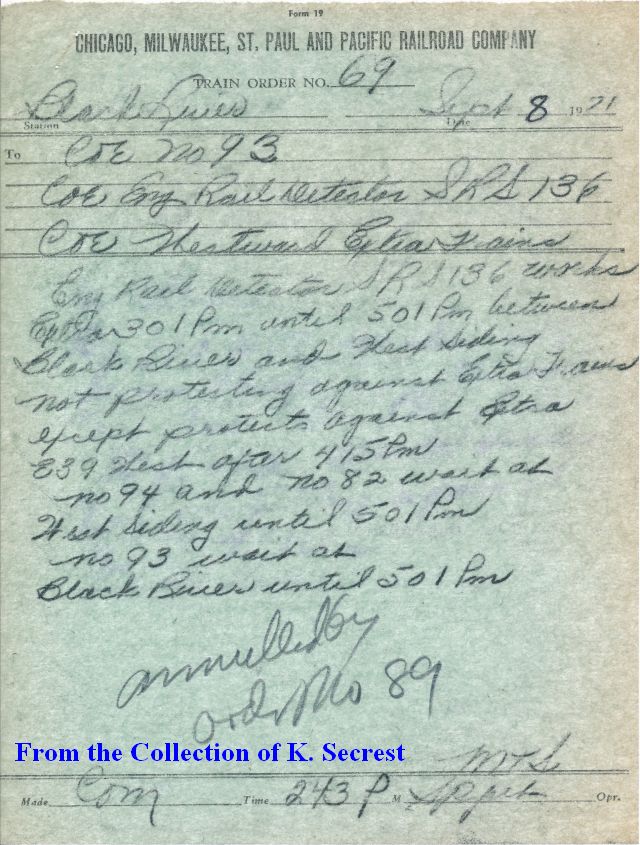 Form 19
CHICAGO, MILWAUKEE, ST. PAUL AND PACIFIC RAILROAD COMPANY
TRAIN ORDER NO. 69
Black River Sept 8 1971
Station Date
To C&E No 93
C&E Eng Rail Detector SRS 136
C&E Westward Extra Trains
Eng Rail Detector SRS 136 works
Extra 301 Pm until 501 Pm between
Black River and West Siding
not protecting against Extra Trains
except protects against Extra
E39 West after 415 Pm
no 94 and no 82 wait at
West Siding until 501 Pm
no 93 wait at
Black River until 501 Pm
annulled by
order No 89
From the Collection of K. Secrest
Made Com Time 243 P M Opr.